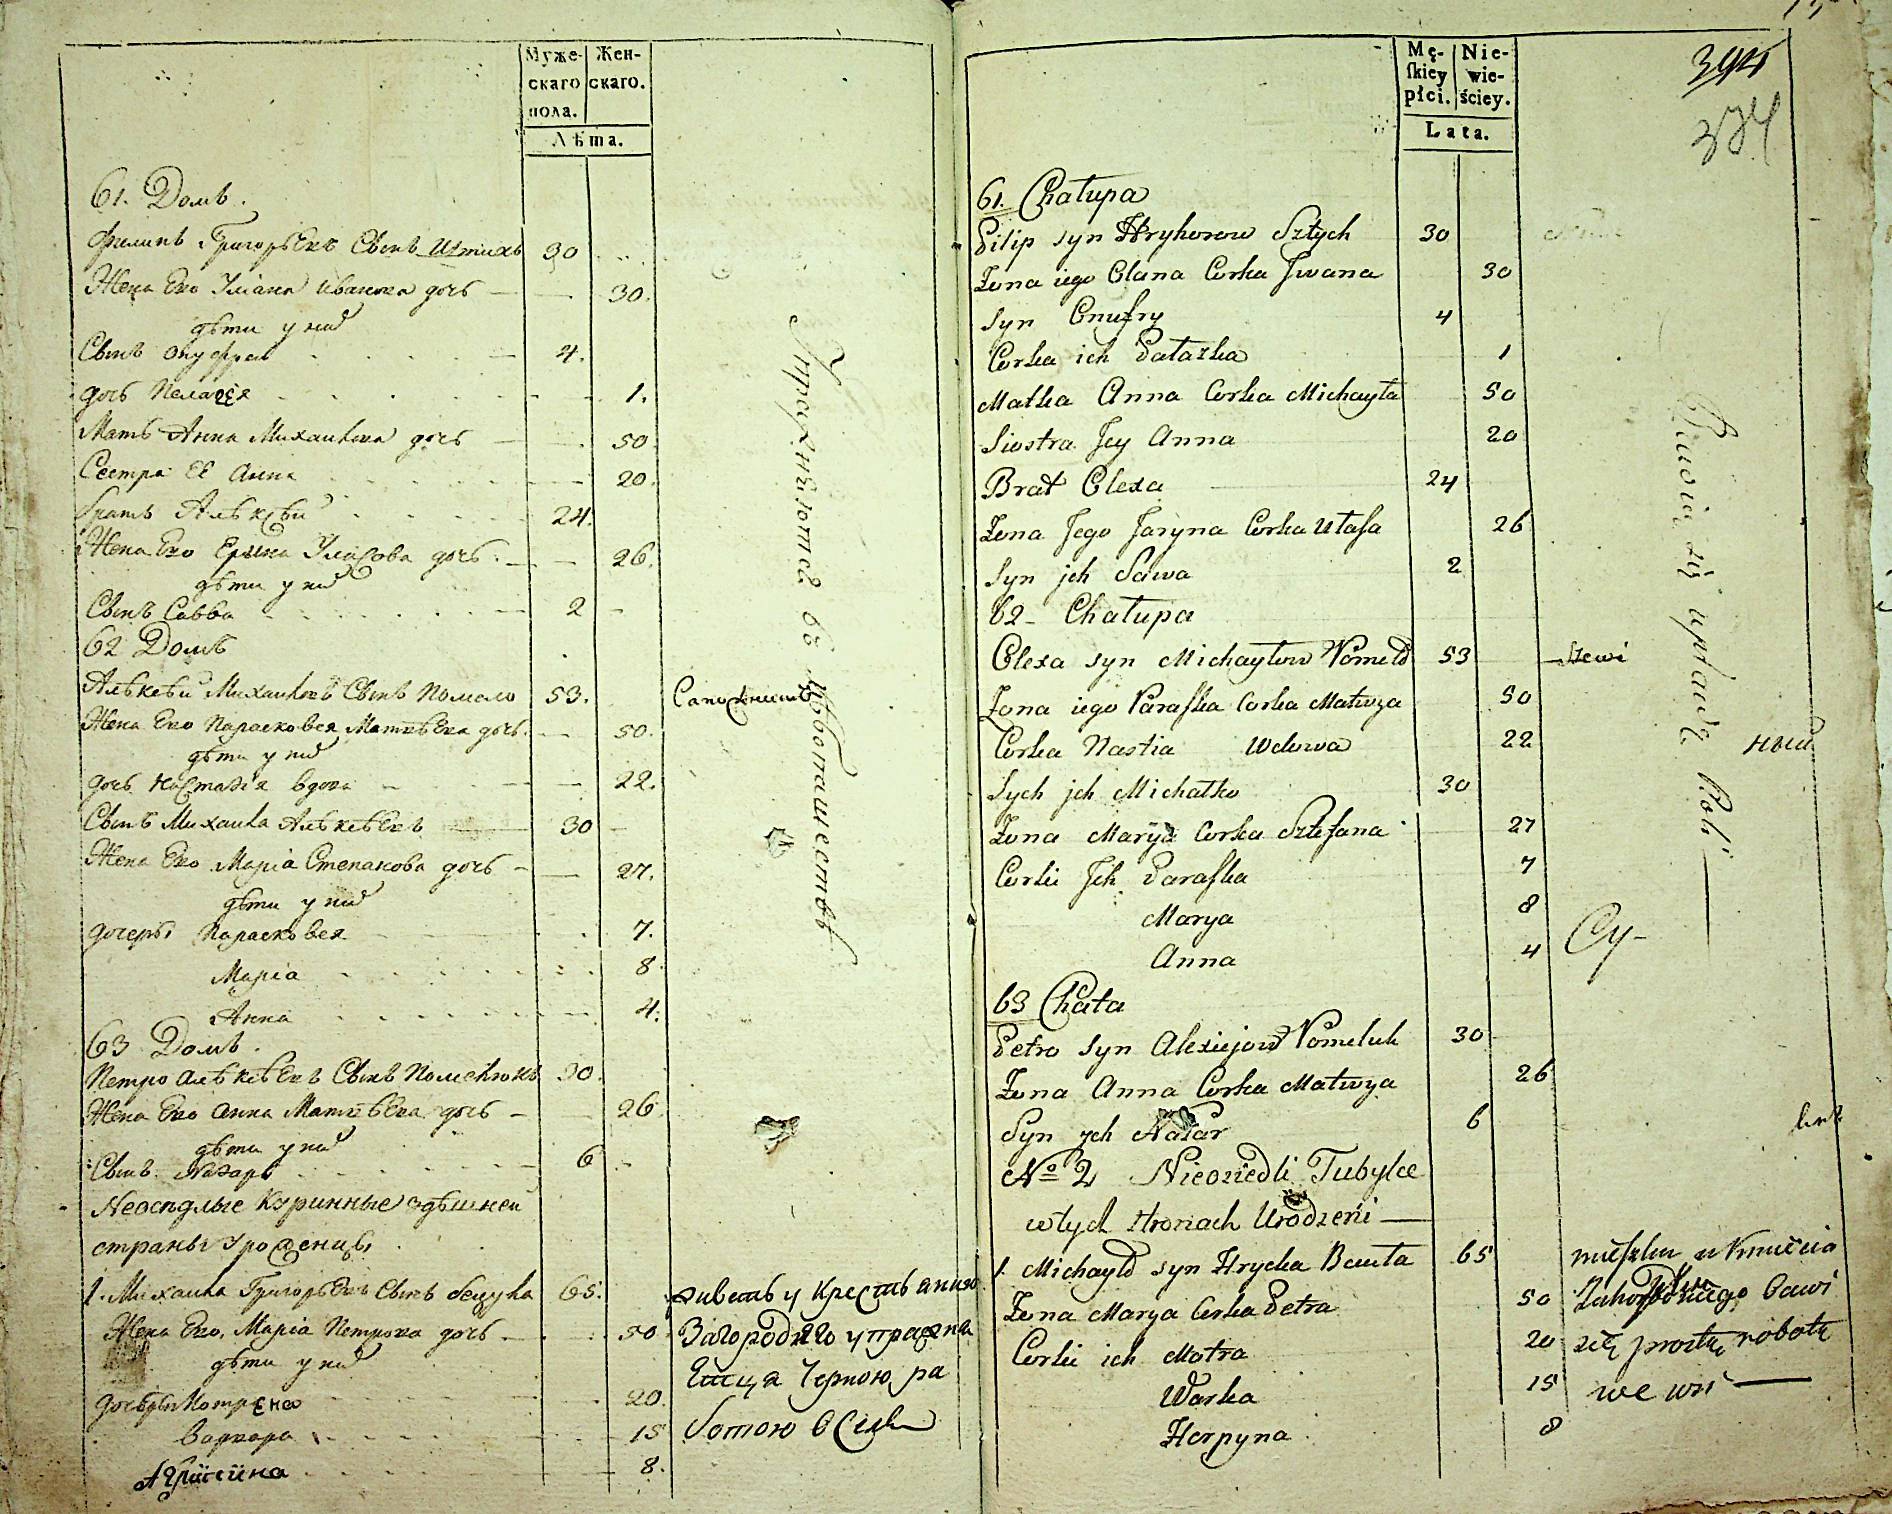 Муже-
скаго
пола.
Жен-
скаго.
Лѣта.
61. Домъ.
Филипъ Григорьевъ Сынъ Штихъ 30
Жена Его Уліана Иванова дочь 30.
дѣти у них
Сынъ Онуфрей 4.
дочь Пелагея 1.
Мать Анна Михаилова дочь 50.
Сестра Её Анна 20.
братъ Алексѣй 24.
Жена Его Ерына Уласова дочь. 26.
дѣти у них
Сынъ Савва 2
62 Домъ
Алексѣй Михаиловъ Сынъ Помело 53. Сапожникъ
Жена Его Парасковея Матвѣева дочь. 50.
дѣти у них
дочь Настазія вдова 22.
Сынъ Михаила Алексѣевъ 30
Жена Его Маріа Степанова дочь 27.
дѣти у них
дочеры Парасковея 7.
Маріа 8.
Анна 4.
63 Домъ.
Петро Алексѣевъ Сынъ Помелюкъ 30.
Жена Его Анна Матвѣева дочь 26.
дѣти у них
Сынъ Назаръ 6
Неоседлые Куринные здѣшней
страны Уроженцы
1. Михаила Григорьевъ Сынъ бецула 65.
Жена Его, Маріа Петрова дочь 50.
дѣти у них
дочери Мотрена 20.
Варвара 15
Агрипина 8.
Упражняются въ хлебопашествѣ
живетъ у
Загородного упражня
Ется Черною ра
ботою в Селе
Mę-
skiey
płci.
Nie-
wie-
ściey.
Lata.
394
374
61. Chałupa
Filip syn Hryhorow Sztych 30
Zona iego Olana Corka Jwana 30
Syn Onufry 4
Corka ich Pałazka 1
Matka Anna Corka Michayła 50
Siostra Jey Anna 20
Brat Olexa 24
Zona Jego Jaryna Corka Ułasa 26
Syn jch Sawa 2
62 - Chałupa
Olexa syn Michayłow Pomeło 53 Szewi
Zona iego Paraska Corka Matwya 50
Corka Nastia Wdowa 22
Sych jch Michałko 30
Zona Marya Corka Sztefana 27
Corki Jch Paraska 7
Marya 8
Anna 4
63 Chata
Petro syn Alexiejow Pomeluk 30
Zona Anna Corka Matwya 26
Syn ych Nazar 6
№ 2 Nieosiedli Tubylce
w tych stronach Urodzeni
1. Michayło syn Hrycka Becuła 65
Zona Marya Corka Petra 50
Corki ich Motra 20
Warka 15
Horpyna 8
Bawią się uprawą Roli
ный
Су-
Zahorodniego bawi
się prostą robotą
we wsi